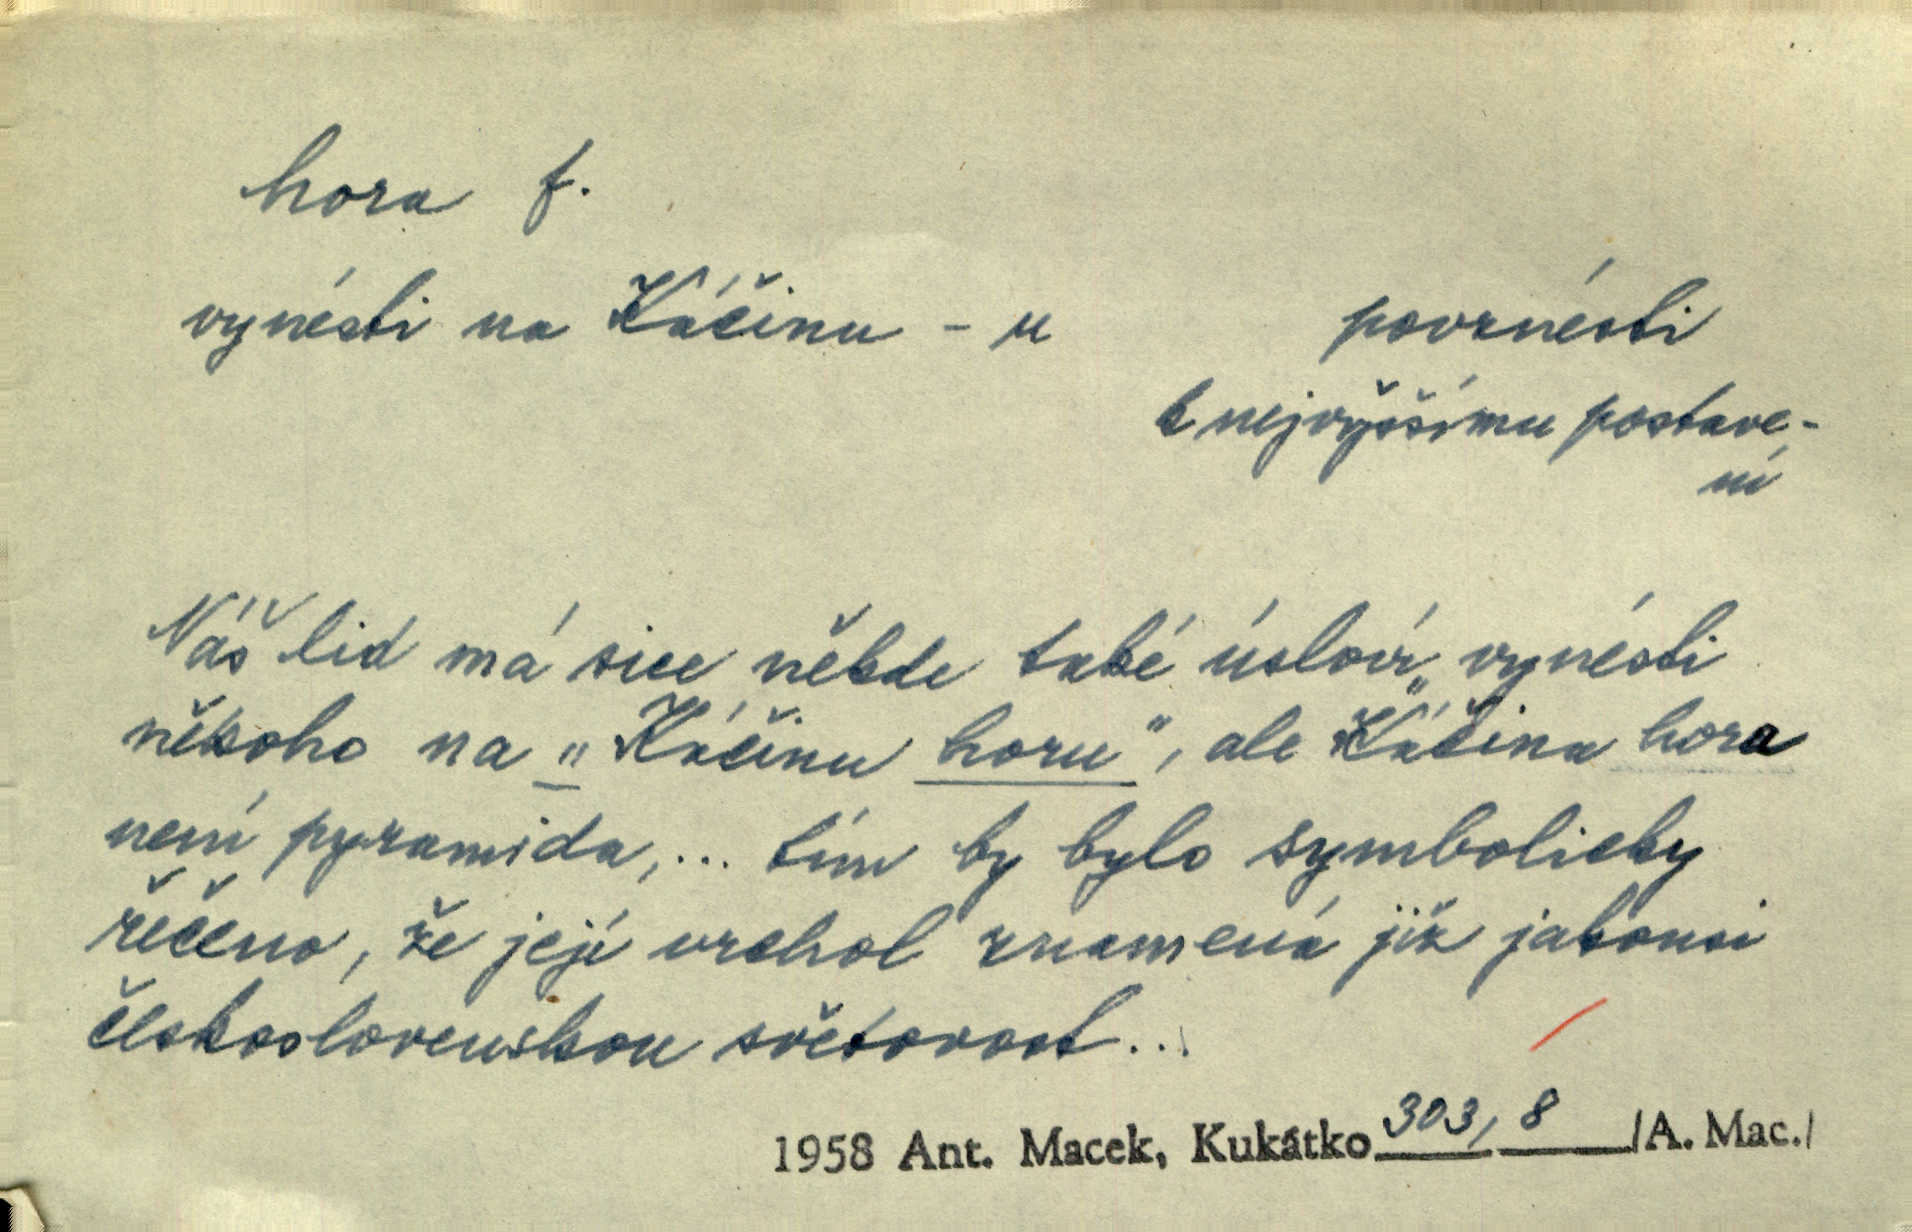 hora f.
vynésti na Káčinu - u povznésti
k nejvyššímu postave-
ní
Náš lid má sice někde také úsloví „vynésti
někoho na „Káčinu horu", ale Káčina hora
není pyramida,... tím by bylo symbolicky
řečeno, že její vrchol znamená již jakousi
československou světovost...
1958 Ant. Macek, Kukátko 303, 8 /A. Mac./